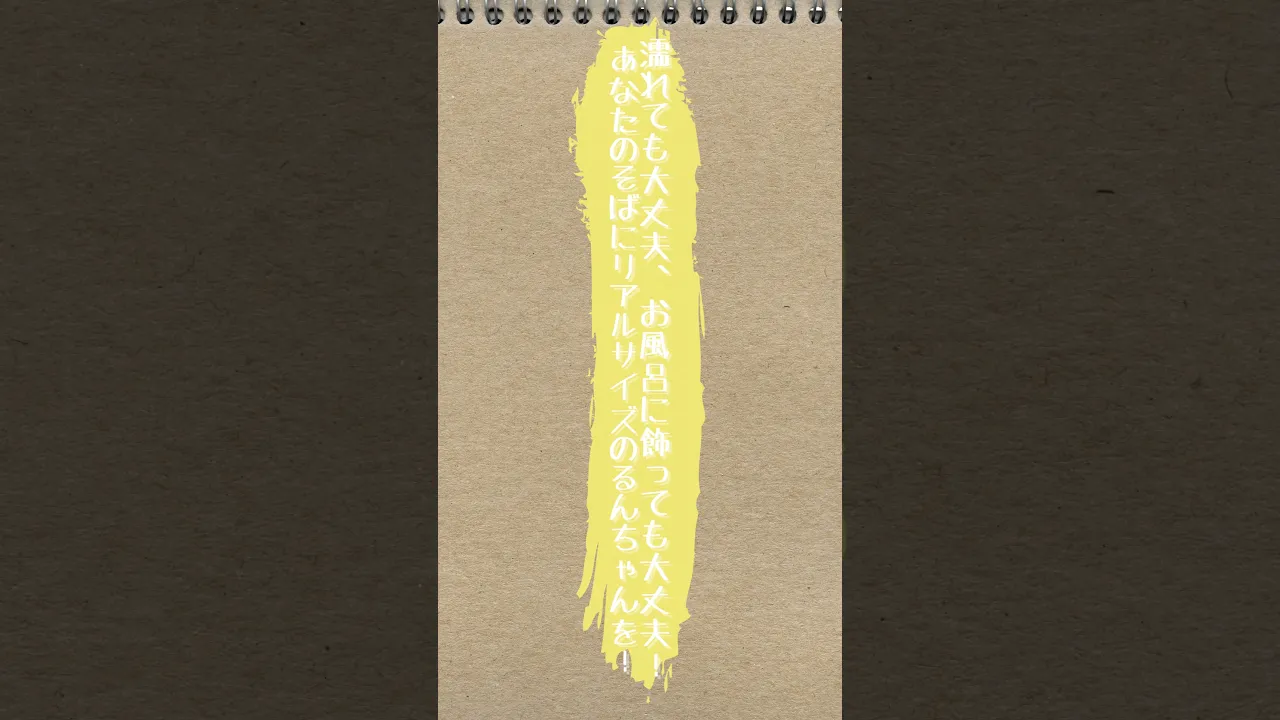 濡れても大丈夫、お風呂に飾っても大丈夫！
あなたのそばにリアルサイズのるんちゃんを！